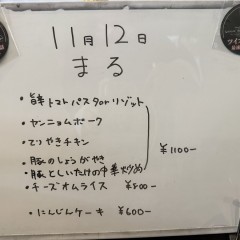 11月12日
まる
・旨辛トマトパスタorリゾット
・ヤンニョムポーク
・てりやきチキン
・豚のしょうがやき
・豚としいたけの中華炒め
¥1100-
・チーズオムライス ¥800-
・にんじんケーキ ¥600-